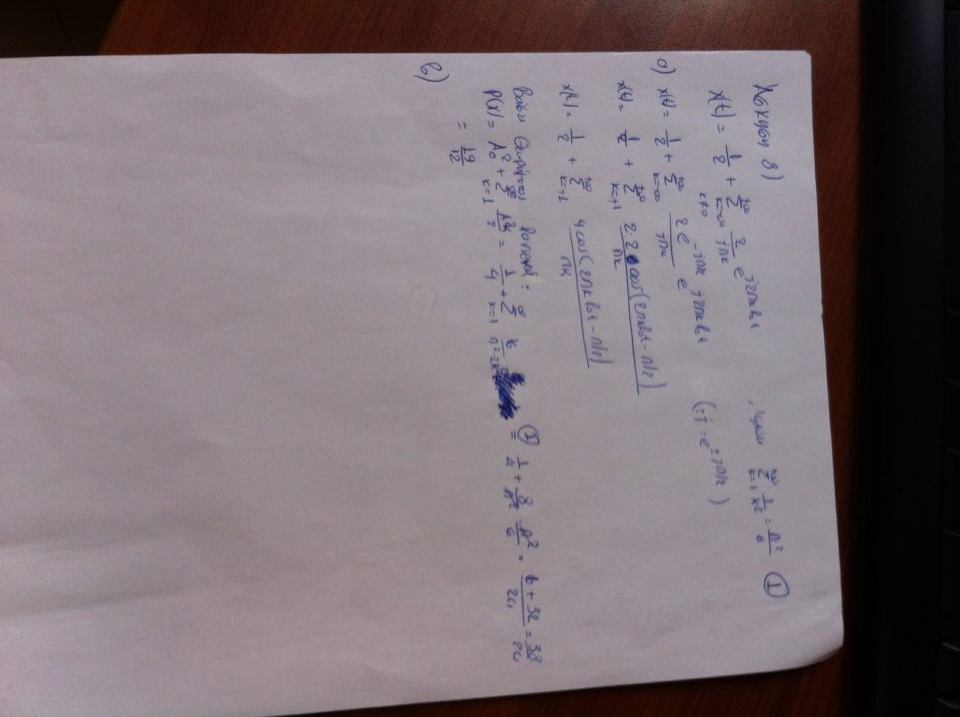 Άσκηση 8)
x(t) = 1/2 + Σ_{k=-∞, k≠0}^{+∞} 2/(jπk) e^{j2πkf₀t} , Σ_{k=1}^{+∞} 1/k² = π²/6 ①
α) x(t) = 1/2 + Σ_{k=-∞}^{+∞} 2e^{-jπ/2}/(jπk) e^{j2πkf₀t} (±j = e^{±jπ/2})
x(t) = 1/2 + Σ_{k=+1}^{+∞} 2·2 cos(2πkf₀t - π/2)/(πk)
x(t) = 1/2 + Σ_{k=+1}^{+∞} 4cos(2πkf₀t - π/2)/(πk)
Βάσει Θεωρήματος Parseval :
P(x) = A₀² + Σ_{k=1}^{∞} A_k²/2 = 1/4 + Σ_{k=1}^{∞} ①= 1/4 + 8/π² π²/6 = (6 + 32)/24 = 38/24
= 19/12
β)